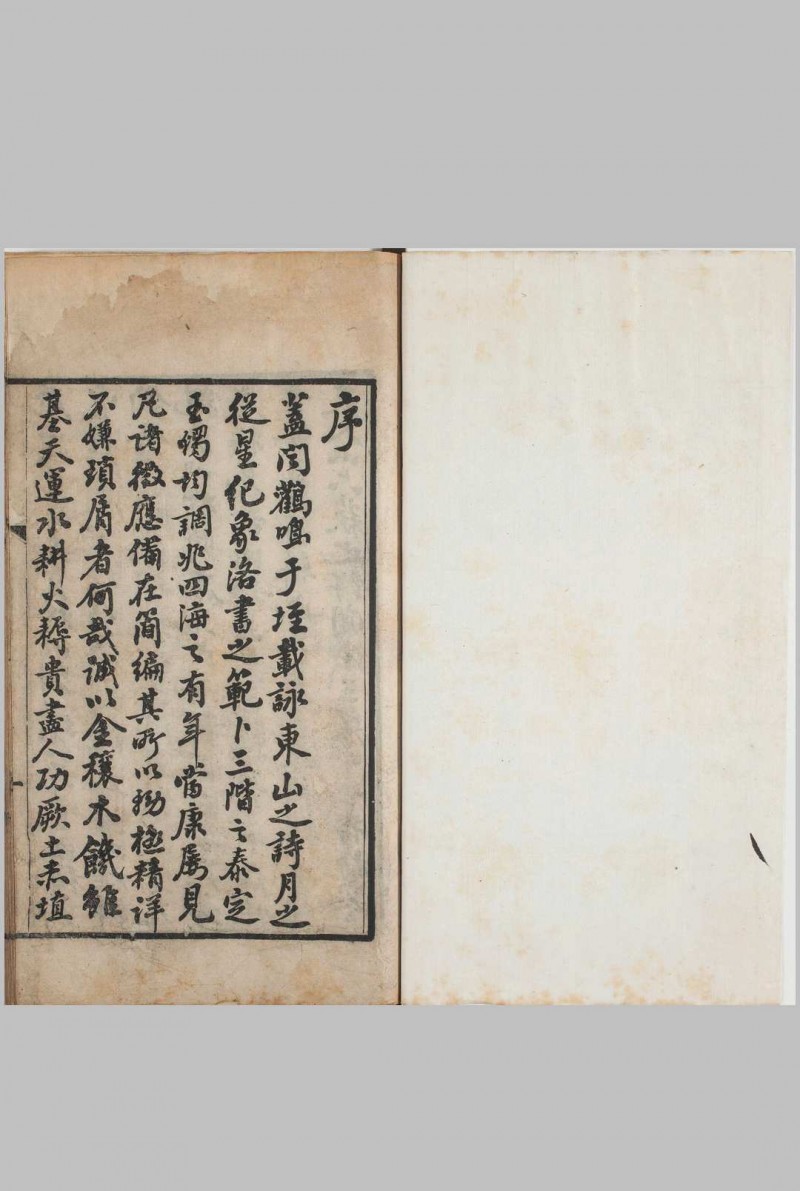 序
蓋聞鸛鳴于垤載詠東山之詩月之
從星紀象洛書之範卜三階之泰定
玉燭均調兆四海之有年當康屢見
凡諸徵應備在簡編其所以務極精詳
不嫌瑣屑者何哉誠以金穰木饑雖
基天運水耕火耨貴盡人功厥土赤埴